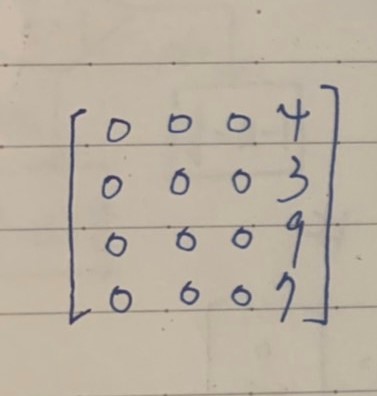 0 0 0 4
0 0 0 3
0 0 0 9
0 0 0 7